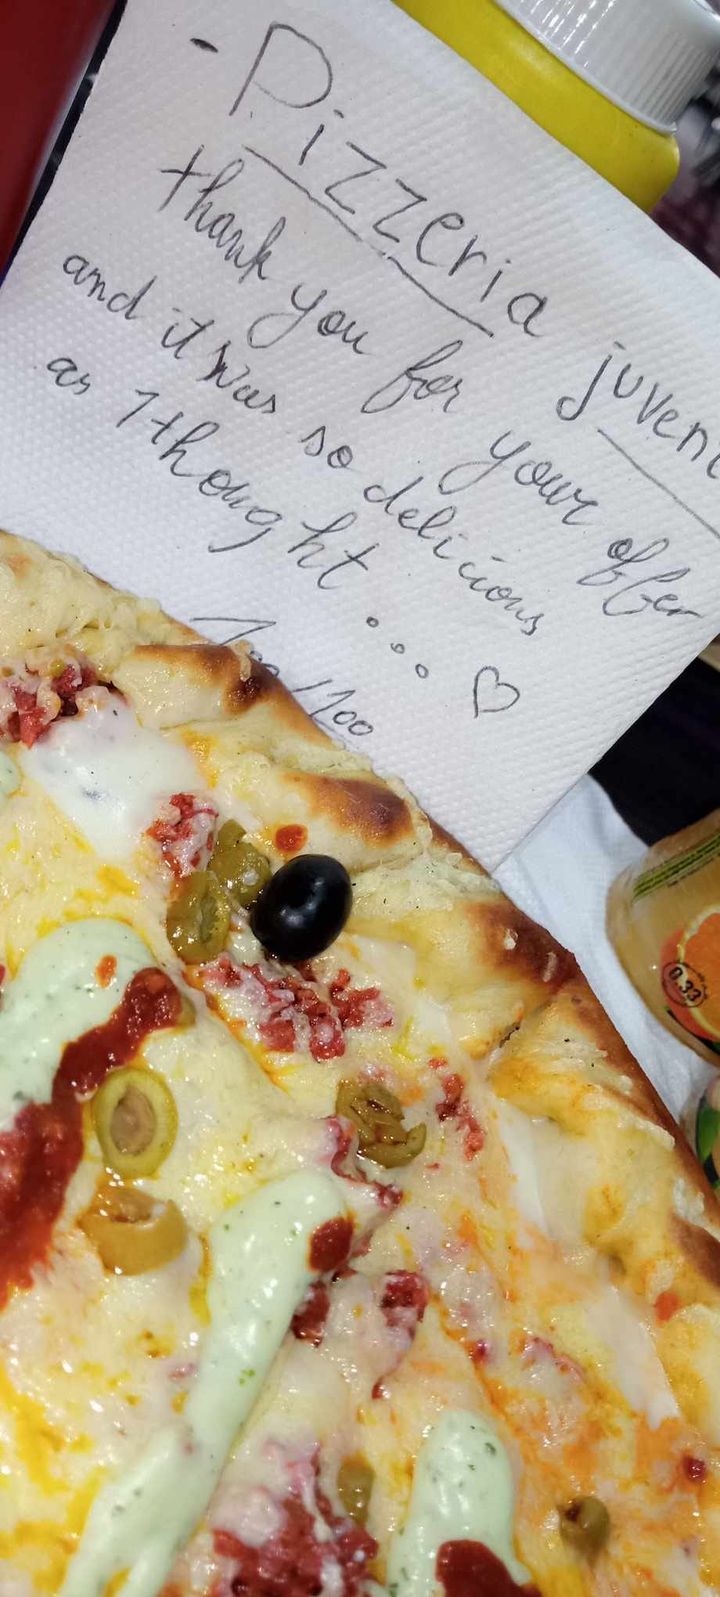 - Pizzeria juven
thank you for your offer
and it was so delicious
as I thought...♡
100/100
0.33